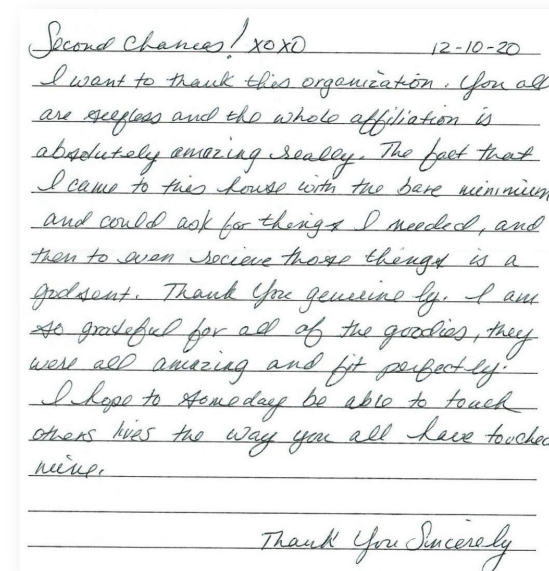 Second Chances! XOXO 12-10-20
I want to thank this organization. You all
are selfless and the whole affiliation is
absolutely amazing really. The fact that
I came to this house with the bare minimium
and could ask for things I needed, and
then to even recieve those things is a
godsent. Thank You genuine ly. I am
so grateful for all of the goodies, they
were all amazing and fit perfectly.
I hope to someday be able to touch
others lives the way you all have touched
mine.
Thank You Sincerely